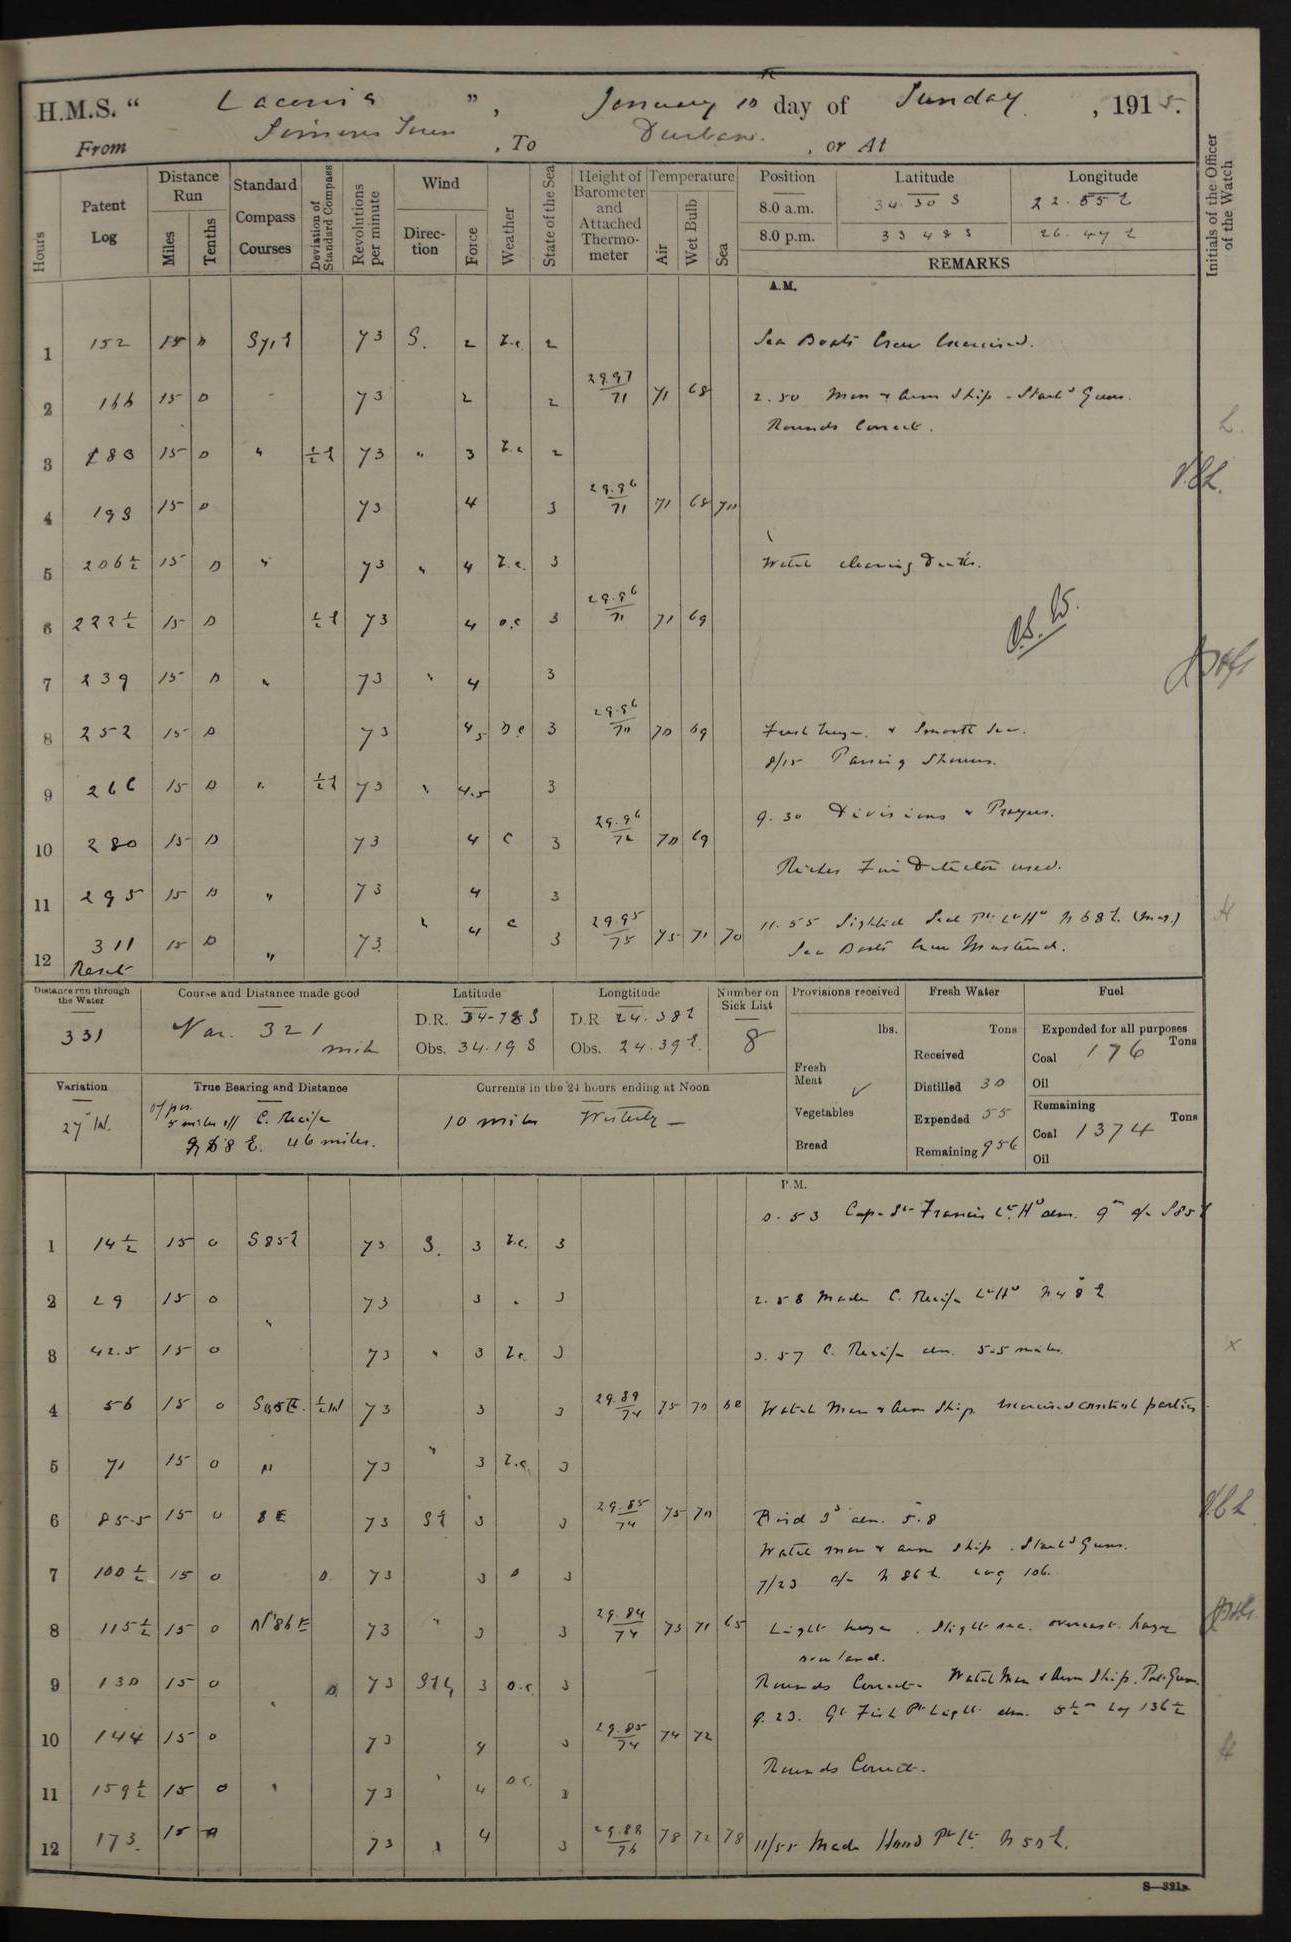 H.M.S. “ Laconia ”, January 10th day of Sunday, 1915.
From Simons Town, To Durban, or At
Hours
Patent Log
Distance Run
Miles
Tenths
Standard Compass Courses
Deviation of Standard Compass
Revolutions per minute
Wind
Direction
Force
Weather
State of the Sea
Height of Barometer and Attached Thermometer
Temperature
Air
Wet Bulb
Sea
Position Latitude Longitude
8.0 a.m. 34.30 S 22.55 E
8.0 p.m. 33 48 S 26.47 E
REMARKS
Initials of the Officer of the Watch
A.M.
1 152 15 0 73 S. 2 2 Sea Boats Crew Exercised.
2 166 15 0 73 2 2 29.97/71 71 68 2.50 Man & Arm Ship - Starbd Guns.
Rounds Correct.
3 183 15 0 " 73 " 3 2
4 193 15 0 73 4 3 29.96/71 71 68 70
5 206½ 15 0 " 73 " 4 3 Watch cleaning Decks.
6 222½ 15 0 73 4 o.c 3 29.96/71 71 69
7 239 15 0 " 73 " 4 3
8 252 15 0 73 4.5 o.c 3 29.96/70 70 69 Fresh breeze & Smooth Sea.
8/15 Passing Showers.
9 266 15 0 " 73 " 4.5 3
9.30 Divisions & Prayers.
10 280 15 0 73 4 c 3 29.96/72 70 69
Riches Fire Detector used.
11 295 15 0 " 73 4 3
11.55 Sighted Seal Pt Lt Ho N 68 E (mag.)
12 311 15 0 " 73 " 4 c 3 29.95/75 75 71 70 Sea Boats Crew Mustered.
Reset
Distance run through the Water
331
Course and Distance made good
Var. 321 mile
Latitude
D.R. 34-18 S
Obs. 34.19 S
Longtitude
D.R 24.38 E
Obs. 24.39 E.
Number on Sick List
8
Provisions received
lbs.
Fresh Meat
Vegetables
Bread
Fresh Water
Tons
Received
Distilled 30
Expended 55
Remaining 956
Fuel
Expended for all purposes
Tons
Coal 176
Oil
Remaining
Tons
Coal 1374
Oil
Variation
27 W.
True Bearing and Distance
5 miles off C. Recife
E. 46 miles.
Currents in the 24 hours ending at Noon
10 miles Westerly
P.M.
0.53 Cape St Francis Lt. Ho abm. 9m a/c S 85 E
1 14½ 15 0 S 85 E 73 S. 3 3
2 29 15 0 73 3 3 2.58 Made C. Recife Lt Ho N 48 E
3 42.5 15 0 " 73 " 3 3 3.57 C. Recife abm. 5.5 miles.
4 56 15 0 S 85 E. ½W 73 3 3 29.89/74 75 70 68 Watch Man & Arm Ship. Exercised control parties.
5 71 15 0 " 73 " 3 3
6 85.5 15 0 73 SE 3 3 29.85/74 75 70 Bird Id abm. 5.8
Watch man & arm ship. Starbd Guns.
7 100½ 15 0 0 73 3 0 3 7/23 a/c N 86 E Log 106.
8 115½ 15 0 N 86 E 73 " 3 3 29.84/74 73 71 65 Light breeze. Slight sea. overcast. hazy
over land.
9 130 15 0 0 73 3 o.c. 3 Rounds Correct. Watch Man & Arm Ship. Port Guns.
9.23. Gt Fish Pt Light abm. 5½m Log 136½
10 144 15 0 73 4 3 29.85/74 74 72
Rounds Correct.
11 159½ 15 0 " 73 " 4 o.c. 3
12 173. 15 0 73 " 4 3 29.88/76 78 72 78 11/55 Made Hood Pt Lt. N 50 E.
S—321a